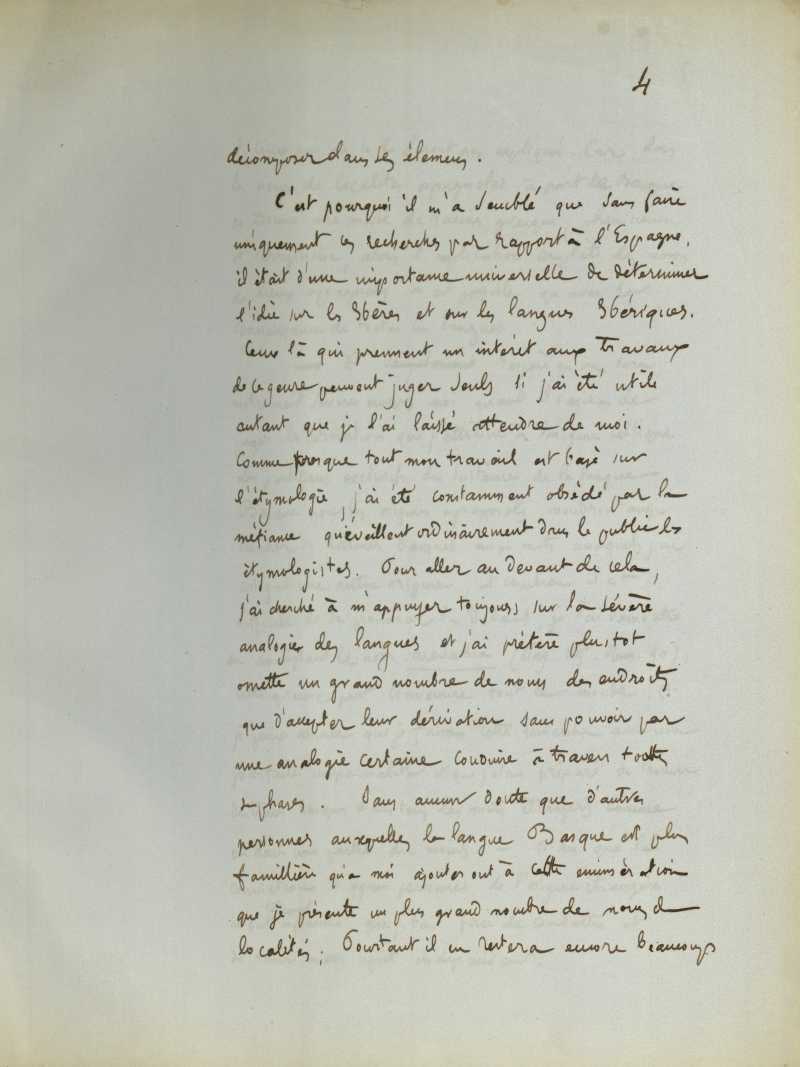 4
décomposer dans les élemens.
C'est pourquoi il m'a semblé que sans faire
uniquement ces recherches par rapport à l'Espagne,
il était d'une importance universelle de déterminer
l'idée sur les Ibères et sur les langues Ibériques.
Ceux là qui prennent un intérêt aux travaux
de ce genre peuvent juger seuls si j'ai été utile
autant que je l'ai laissé attendre de moi.
Comme presque tout mon travail est basé sur
l'étymologie, j'ai été constamment obsédé par la
méfiance qu'éveillent ordinairement dans le public les
étymologistes. Pour aller au devant de cela,
j'ai cherché à m'appuyer toujours sur la sévère
analogie des langues et j'ai préféré plustot
omettre un grand nombre de noms des endroits
que d'accepter leur dérivation sans pouvoir par
une analogie certaine conduire à travers toutes
phases. Sans aucun doute que d'autres
personnes auxquelles la langue Basque est plus
famillière qu'a moi ajouteront à cette enumération
que je présente un plus grand nombre de noms de
localités; Pourtant il en restera encore beaucoup